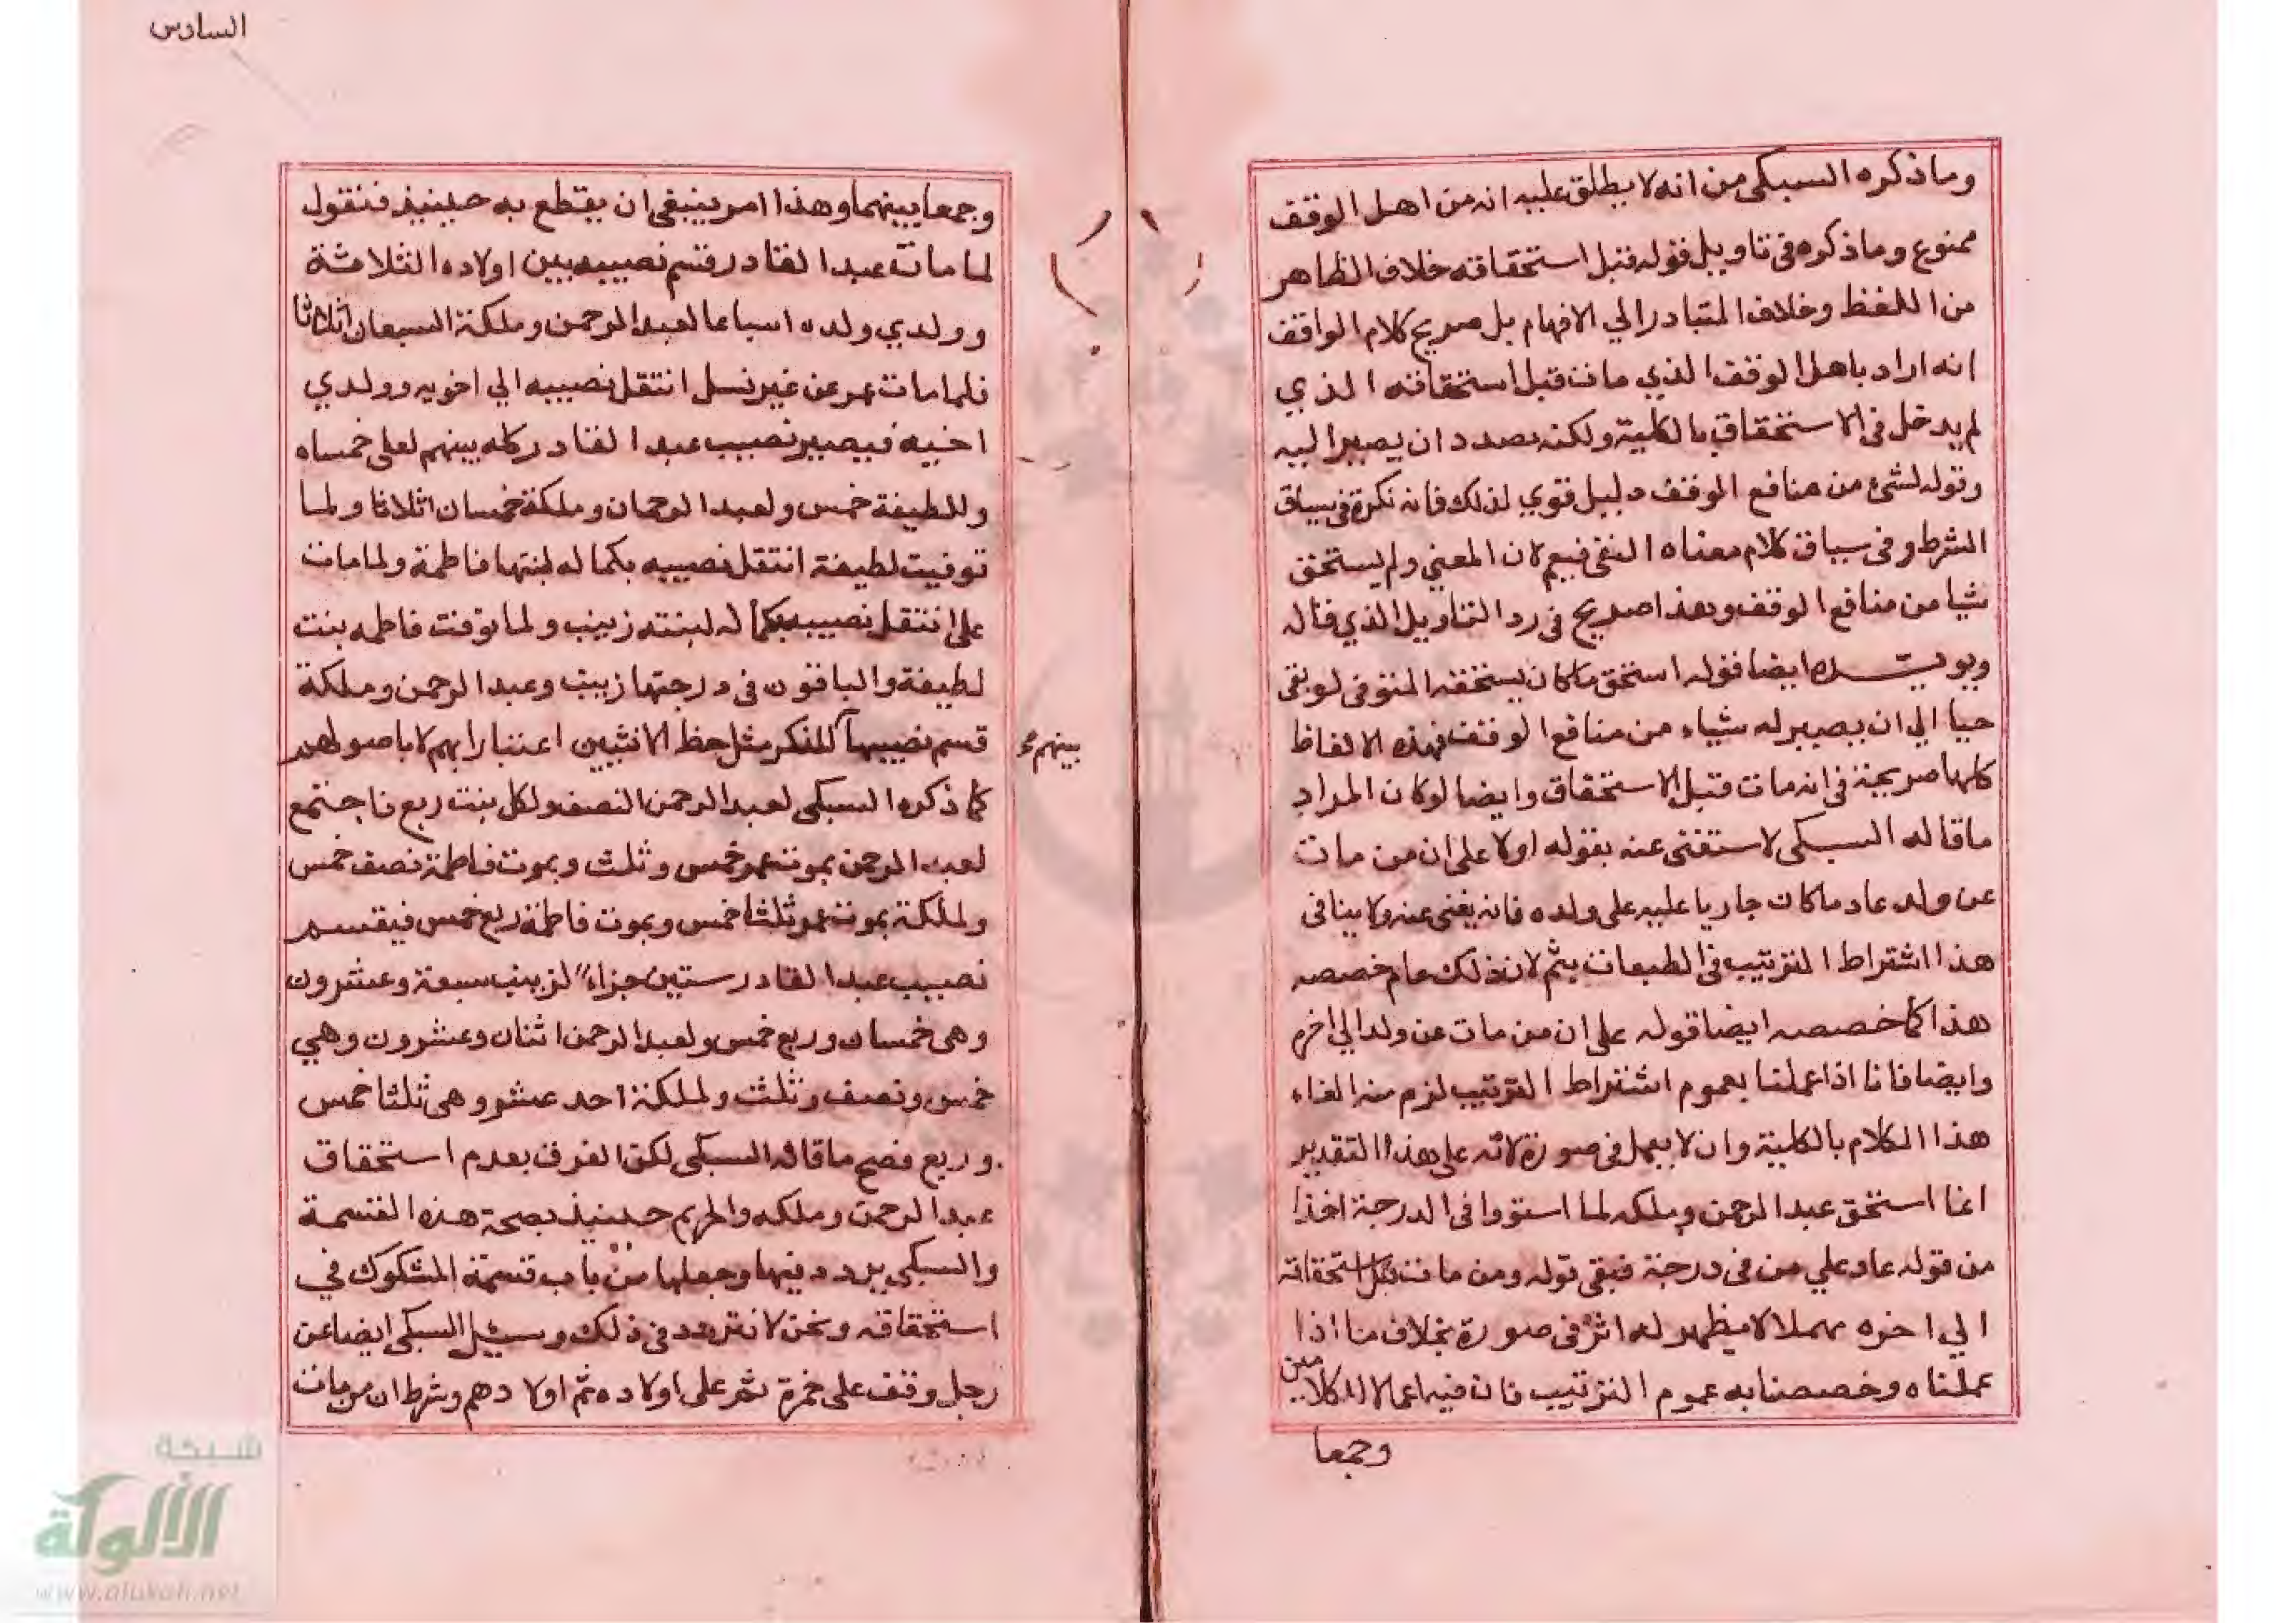 وما ذكره السبكى من انه لا يطلق عليه انه من اهل الوقف
ممنوع وما ذكره فى تاويل قوله قبل استحقاقه خلاف الظاهر
من اللفظ وخلاف المتبادر الي الافهام بل صريح كلام الواقف
انه اراد باهل الوقف الذي مات قبل استحقاقه الذي
لم يدخل فى الاستحقاق بالكلية ولكنه بصدد ان يصير اليه
وقوله لشئ من منافع الوقف دليل قوي لذلك فانه نكرة فى سياق
الشرط وفى سياق كلام معناه النفى فيعم لان المعني ولم يستحق
شيا من منافع الوقف وهذا صريح فى رد التاويل الذي قاله
ويويده ايضا قوله استحق ما كان يستحقه المتوفى لو بقى
حيا الي ان يصير له شياء من منافع الوقف فهذه الالفاظ
كلها صريحة فى انه مات قبل الاستحقاق وايضا لو كان المراد
ما قاله السبكى لاستغنى عنه بقوله اولا على ان من مات
عن ولد عاد ما كان جاريا عليه على ولده فانه يغنى عنه ولا ينافى
هذا اشتراط الترتيب فى الطبعات بثم لان ذلك عام خصصه
هذا كما خصصه ايضا قوله على ان من مات عن ولد الي اخره
وايضا فانا اذا عملنا بعموم اشتراط الترتيب لزم منه الغاء
هذا الكلام بالكلية وان لا يعمل فى صورة لانه على هذا التقدير
انما استحق عبد الرحمن وملكه لما استووا فى الدرجة اخذا
من قوله عاد علي من فى درجته فبقى قوله ومن مات قبل استحقاقه
الي اخره مهملا لا يظهر له اثر فى صورة بخلاف ما اذا
عملناه وخصصنا به عموم الترتيب فان فيه اعمالا للكلامين
وجمعا
السادس
وجمعا بينهما وهذا امر ينبغى ان يقطع به حينيذ فنقول
لما مات عبد القادر قسم نصيبه بين اولاده الثلاثة
وولدي ولده اسباعا لعبد الرحمن وملكة السبعان اثلاثا
فلما مات عمر عن غير نسل انتقل نصيبه الي اخويه وولدي
اخيه فيصير نصيب عبد القادر كله بينهم لعلى خمساه
وللطيفة خمس ولعبد الرحمان وملكة خمسان اثلاثا ولما
توفيت لطيفة انتقل نصيبه بكماله لبنتها فاطمة ولما مات
على انتقل نصيبه بكماله لبنته زينب ولما توفت فاطمه بنت
لطيفة والباقون فى درجتها زينب وعبد الرحمن وملكة
قسم نصيبها للذكر مثل حظ الانثيين اعتبارا بهم لا باصولهم
بينهم
كما ذكره السبكى لعبد الرحمن النصف ولكل بنت ربع فاجتمع
لعبد الرحمن بموت عمر خمس وثلث وبموت فاطمة نصف خمس
ولملكة بموت عمر ثلثا خمس وبموت فاطمة ربع خمس فيقسم
نصيب عبد القادر ستين جزاء لزينب سبعة وعشرون
وهى خمسان وربع خمس ولعبد الرحمن اثنان وعشرون وهي
خمس ونصف وثلث ولملكة احد عشر وهى ثلثا خمس
وربع فصح ما قاله السبكى لكن الفرق بعدم استحقاق
عبد الرحمن وملكه والجزم حينيذ بصحة هذه القسمة
والسبكى يردد فيها وجعلها من باب قسمة المشكوك في
استحقاقه ونحن لا نتردد فى ذلك وسيل السبكى ايضا عن
رجل وقف على حمزة ثم على اولاده ثم اولادهم وشرط ان من مات
شبكة
الألوكة
www.alukah.net